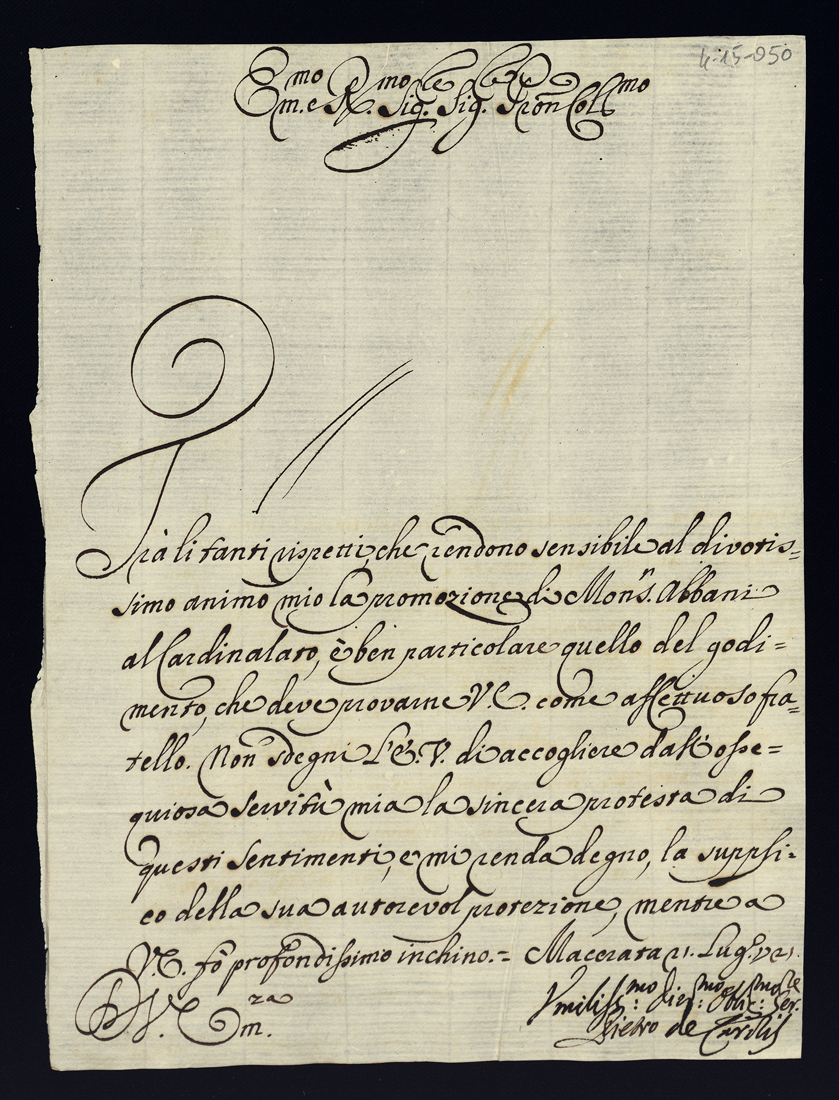 4-15-050
Em.mo e R.mo Sig.le Sig.le Pron Coll.mo
Trà li tanti rispetti, che rendono sensibile al divotis=
simo animo mio la promozione di Mons.n Albani
al Cardinalato, è ben particolare quello del godi=
mento, che deve provarne V.E. come affettuoso fra=
tello. Non sdegni L'E.V. di accogliere dall'osse=
quiosa servitù mia la sincera protesta di
questi sentimenti, e mi renda degno, la suppli=
co della sua autorevol protezione, mentre a
V.E. fò profondissimo inchino.= Macerata 21. Lug.o 721.
D. V. Em.za
Vmiliss.mo Div.mo Oblig.mo Ser.re
Pietro de Carolis